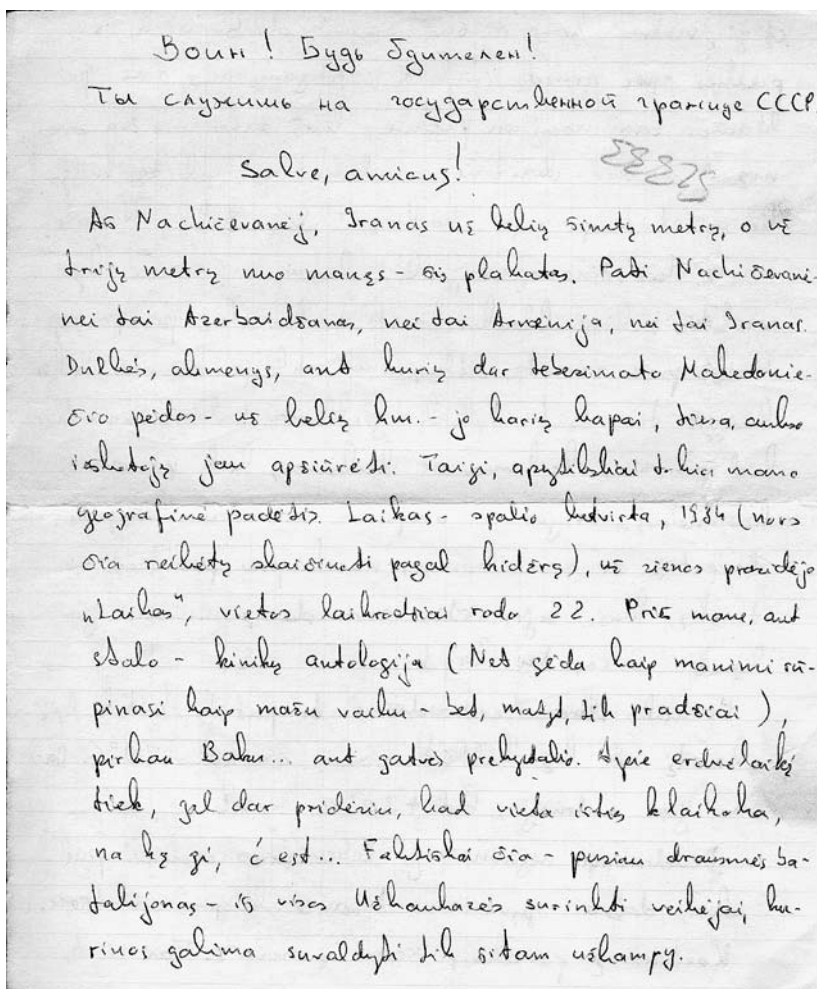 Воин! Будь бдителен!
Ты служишь на государственной границе СССР.
Salve, amicus!
Aš Nachičevanėj, Iranas už kelių šimtų metrų, o už
trijų metrų nuo manęs - šis plakatas. Pati Nachičevanė-
nei tai Azerbaidžanas, nei tai Armėnija, nei tai Iranas.
Dulkės, akmenys, ant kurių dar tebežimato Makedonie-
čio pėdos - už kelių km. - jo karių kapai, tiesa, aukso
ieškotojų jau apžiūrėti. Taigi, apytiksliai tokia mano
geografinė padėtis. Laikas - spalio ketvirta, 1984 (nors
čia reikėtų skaičiuoti pagal hidžrą), už sienos prazidėjo
„Laikas", vietos laikrodžiai rodo 22. Prie mane, ant
stalo - kinikų antologija (Net gėda kaip manimi rū-
pinasi kaip mažu vaiku - bet, matyt, tik pradžiai),
pirkau Baku... ant gatvės prekystalio. Apie erdvėlaikį
tiek, gal dar pridėsiu, kad vieta išties klaikoka,
na ką gi, c'est... Faktiškai čia - pusiau drausmės ba-
talijonas - iš visos Užkaukazės surinkti veikėjai, ku-
riuos galima suvaldyti tik šitam užkampy.